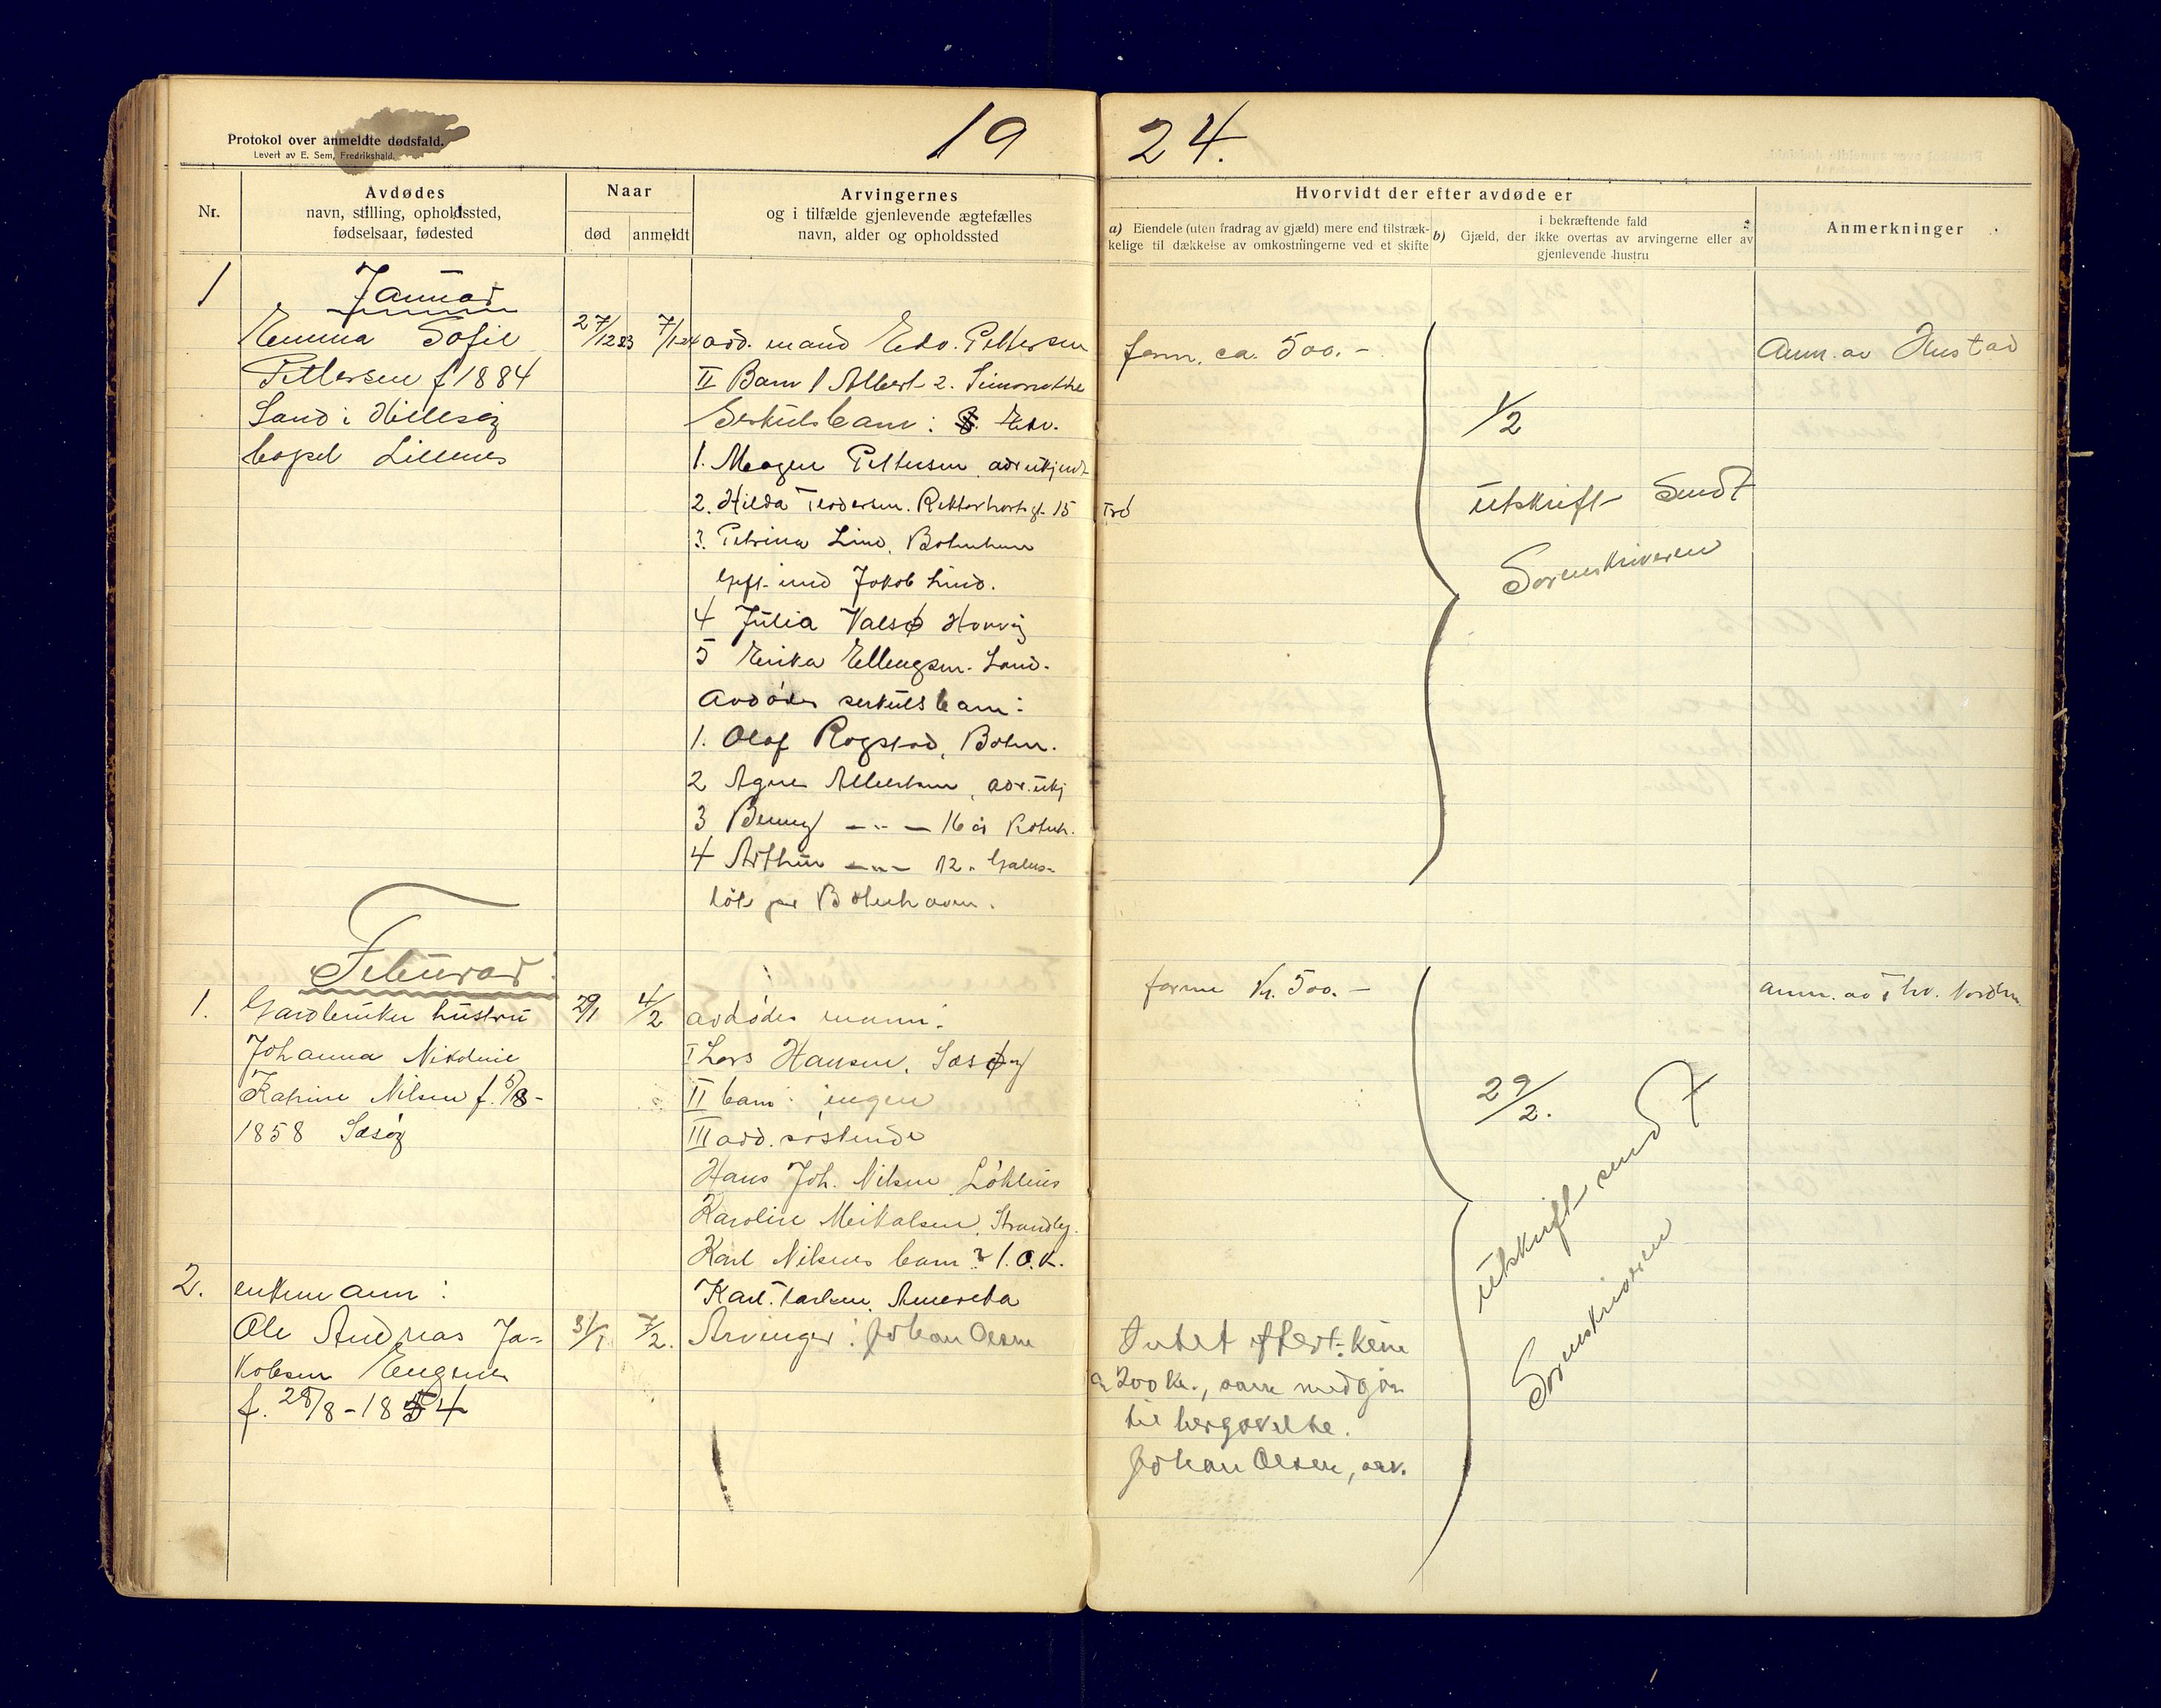 Protokol over anmeldte dødsfald.
Levert av E. Sem, Fredrikshald.
19
24.
Nr.
Avdødes
navn, stilling, opholdssted,
fødselsaar, fødested
Naar
død
anmeldt
Arvingernes
og i tilfælde gjenlevende ægtefælles
navn, alder og opholdssted
Hvorvidt der efter avdøde er
a) Eiendele (uten fradrag av gjæld) mere end tilstræk-
kelige til dækkelse av omkostningerne ved et skifte
i bekræftende fald
b) Gjæld, der ikke overtas av arvingerne eller av
gjenlevende hustru
Anmerkninger
1
Januar
Emma Sofie
Pettersen f 1884
Sand i Hillesøy
Capel Lillenes
27/12 23
7/1 24
avd. mand Edv. Pettersen
II Barn 1 Albert 2.
Serkulsbarn: Edv.
1. Magna Pettersen adr ukjendt
2. Hilda Teodorsen. 15
Trd
3. Petrina Lind, Botnhavn
gift med Jakob Lind.
4 Julia Valsø
5 Erika Ellingsen. Sand.
Avdødes serkulsbarn:
1. Olaf Rogstad, Botn.
2 Agnes Albertsen, adr. ukj
3 Benny — " — 16 år Botnh.
4 Arthur — " — 12 "
Botnhavn.
form. ca. 500.-
1/2
utskrift sendt
Sorenskriveren
Anm. av Hustad
Februar
1.
Gardbruker hustru
Johanna Nikoline
Katrine Nilsen f. 5/8-
1858 Sæsøy
29/1
4/2
avdødes mann:
I Lars Hansen. Sæsøy
II barn: ingen
III avd. søskende
Hans Joh. Nilsen
Karoline Meikalsen, Strandby.
Karl Nilsens barn? 1. O.K.
Karl. Karlsen. Amerika
forme Kr. 500.-
29/2.
utskrift sendt
Sorenskriveren
2.
enkemann:
Ole Andreas Ja-
kobsen Engenes
f. 28/8-1854
31/1
7/2.
Arvinger: Johan Olsen
Intet efterl. kun
ca 200 kr., som medgår
til begravelse.
Johan Olsen, arv.